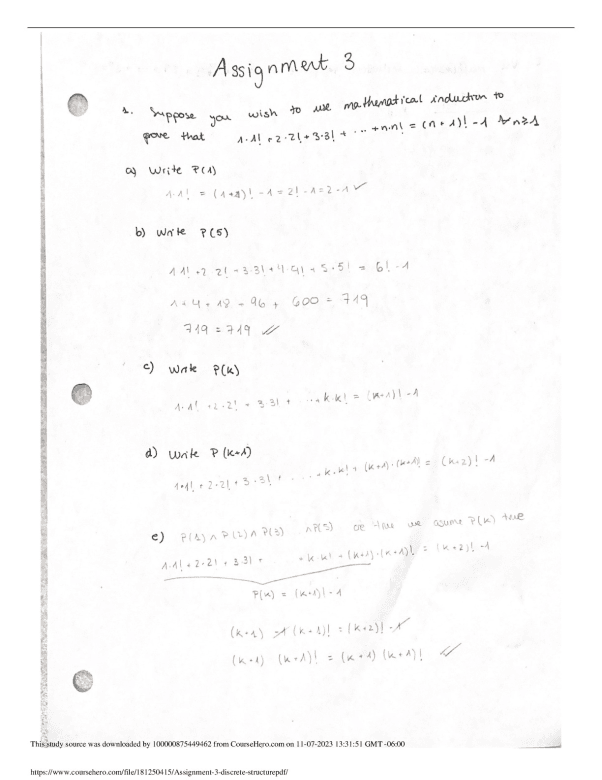 Assignment 3
1. Suppose you wish to use mathematical induction to
prove that 1·1! + 2·2! + 3·3! + ... + n·n! = (n+1)! - 1 ∀ n≥1
a) Write P(1)
1·1! = (1+1)! - 1 = 2! - 1 = 2 - 1 ✓
b) Write P(5)
1·1! + 2·2! + 3·3! + 4·4! + 5·5! = 6! - 1
1 + 4 + 18 + 96 + 600 = 719
719 = 719 //
c) Write P(k)
1·1! + 2·2! + 3·3! + ... + k·k! = (k+1)! - 1
d) Write P(k+1)
1·1! + 2·2! + 3·3! + ... + k·k! + (k+1)·(k+1)! = (k+2)! - 1
e) P(1) ∧ P(2) ∧ P(3) ∧ P(5) are true we asume P(k) true
1·1! + 2·2! + 3·3! + + k·k! + (k+1)·(k+1)! = (k+2)! - 1
P(k) = (k+1)! - 1
(k+1) - 1 (k+1)! = (k+2)! - 1
(k+1) · (k+1)! = (k+1) (k+1)! //
This study source was downloaded by 100000875449462 from CourseHero.com on 11-07-2023 13:31:51 GMT -06:00
https://www.coursehero.com/file/181250415/Assignment-3-discrete-structurepdf/